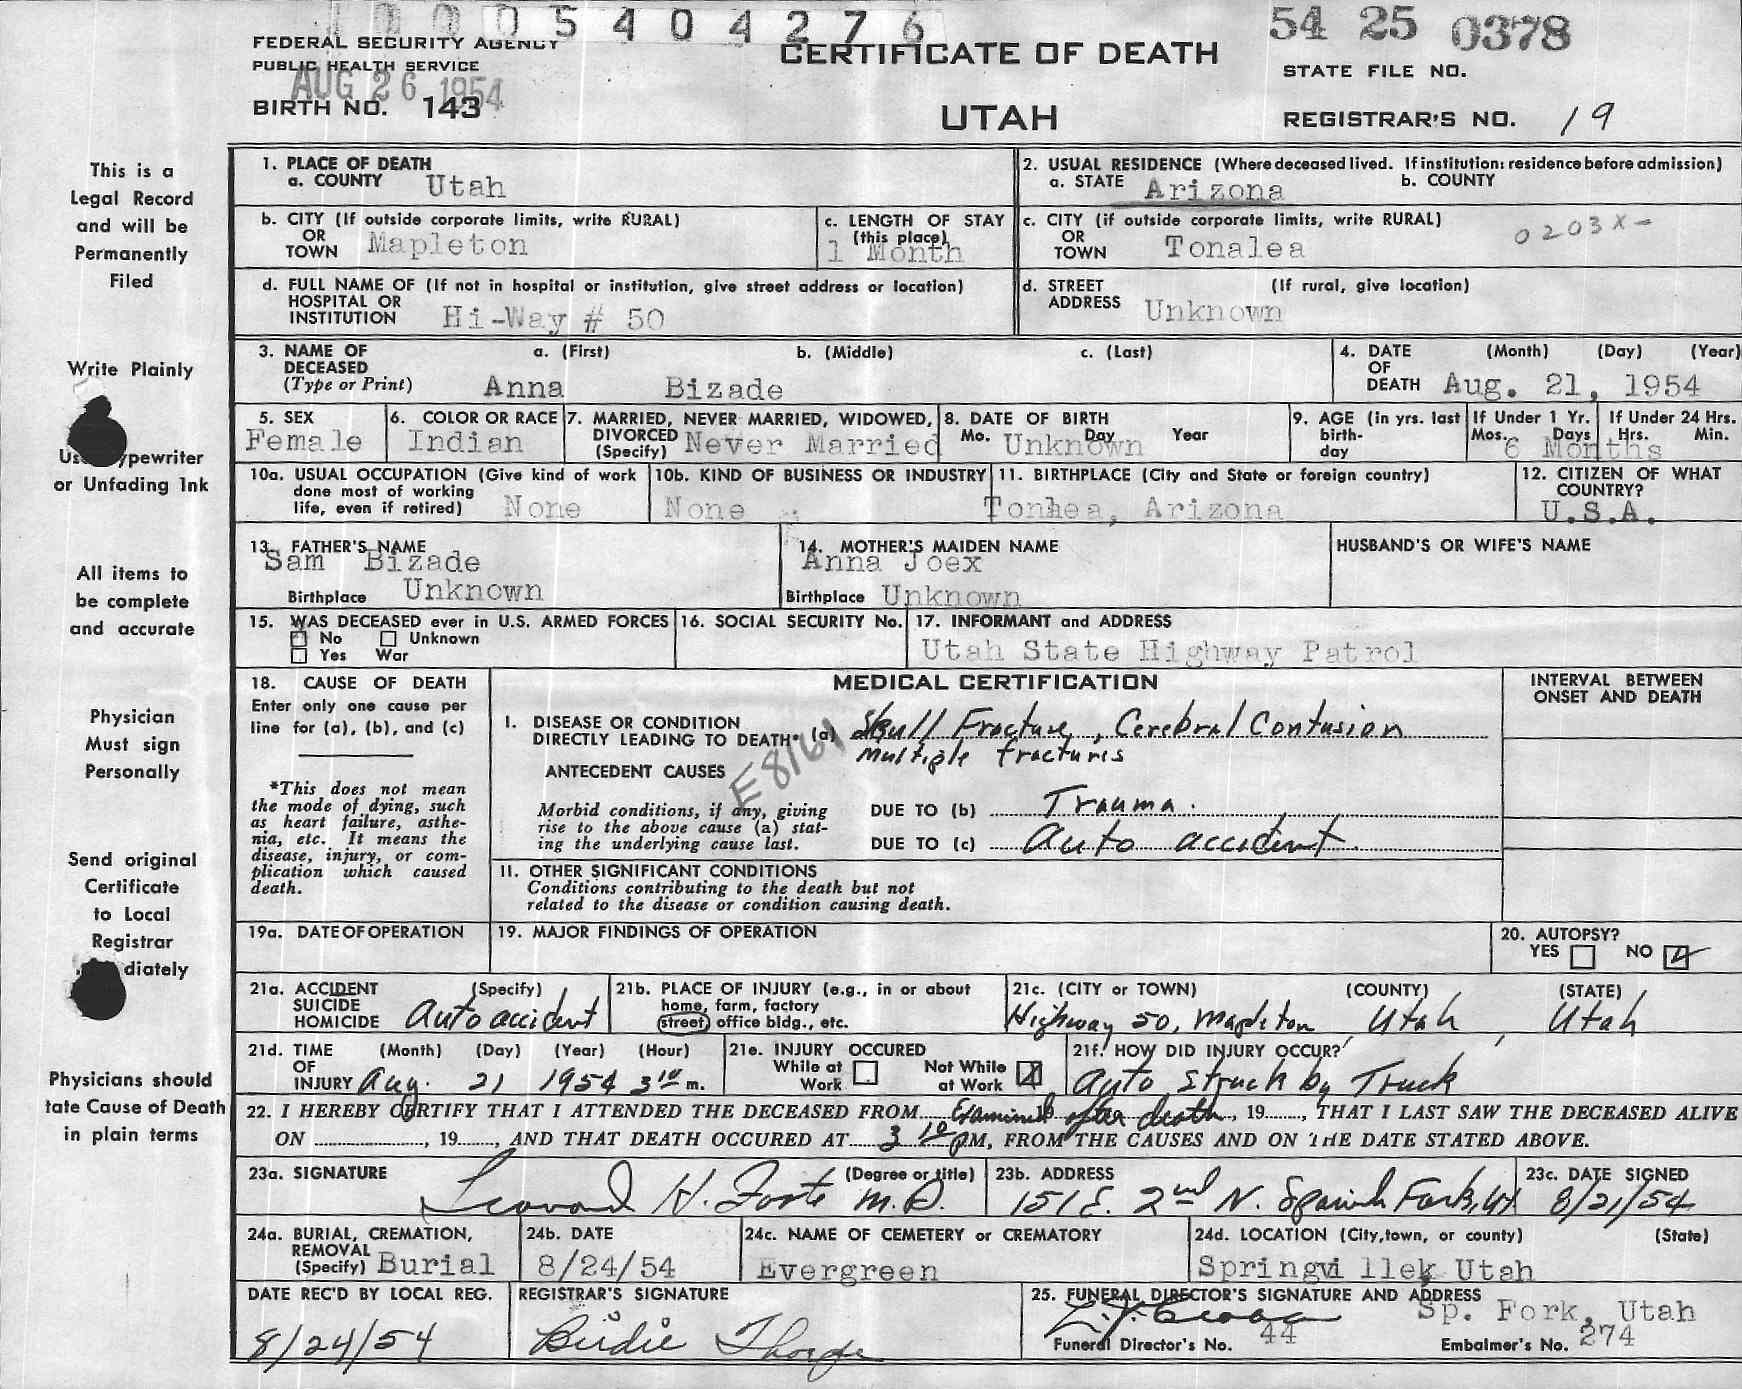 10005404276
54 25 0378
FEDERAL SECURITY AGENCY
PUBLIC HEALTH SERVICE
AUG 26 1954
BIRTH NO. 143
CERTIFICATE OF DEATH
UTAH
STATE FILE NO.
REGISTRAR'S NO. 19
This is a
Legal Record
and will be
Permanently
Filed
Write Plainly
Use Typewriter
or Unfading Ink
All items to
be complete
and accurate
Physician
Must sign
Personally
Send original
Certificate
to Local
Registrar
diately
Physicians should
tate Cause of Death
in plain terms
1. PLACE OF DEATH
a. COUNTY Utah
2. USUAL RESIDENCE (Where deceased lived. If institution: residence before admission)
a. STATE Arizona b. COUNTY
b. CITY (If outside corporate limits, write RURAL)
OR
TOWN Mapleton
c. LENGTH OF STAY
(this place)
1 Month
c. CITY (if outside corporate limits, write RURAL)
OR
TOWN Tonalea
0203X-
d. FULL NAME OF (If not in hospital or institution, give street address or location)
HOSPITAL OR
INSTITUTION Hi-Way # 50
d. STREET (If rural, give location)
ADDRESS Unknown
3. NAME OF a. (First) b. (Middle) c. (Last)
DECEASED
(Type or Print) Anna Bizade
4. DATE (Month) (Day) (Year)
OF
DEATH Aug. 21, 1954
5. SEX
Female
6. COLOR OR RACE
Indian
7. MARRIED, NEVER MARRIED, WIDOWED,
DIVORCED
(Specify) Never Married
8. DATE OF BIRTH
Mo. Day Year
Unknown
9. AGE (in yrs. last
birth-
day
If Under 1 Yr.
Mos. Days
If Under 24 Hrs.
Hrs. Min.
6 Months
10a. USUAL OCCUPATION (Give kind of work
done most of working
life, even if retired) None
10b. KIND OF BUSINESS OR INDUSTRY
None
11. BIRTHPLACE (City and State or foreign country)
Tonhea, Arizona
12. CITIZEN OF WHAT
COUNTRY?
U.S.A.
13. FATHER'S NAME
Sam Bizade
Birthplace Unknown
14. MOTHER'S MAIDEN NAME
Anna Joex
Birthplace Unknown
HUSBAND'S OR WIFE'S NAME
15. WAS DECEASED ever in U.S. ARMED FORCES
No Unknown
Yes War
16. SOCIAL SECURITY No.
17. INFORMANT and ADDRESS
Utah State Highway Patrol
18. CAUSE OF DEATH
Enter only one cause per
line for (a), (b), and (c)
*This does not mean
the mode of dying, such
as heart failure, asthe-
nia, etc. It means the
disease, injury, or com-
plication which caused
death.
MEDICAL CERTIFICATION
INTERVAL BETWEEN
ONSET AND DEATH
I. DISEASE OR CONDITION
DIRECTLY LEADING TO DEATH* (a) Skull Fracture, Cerebral Contusion
Multiple fractures
E8161
ANTECEDENT CAUSES
Morbid conditions, if any, giving
rise to the above cause (a) stat-
ing the underlying cause last.
DUE TO (b) Trauma.
DUE TO (c) auto accident.
11. OTHER SIGNIFICANT CONDITIONS
Conditions contributing to the death but not
related to the disease or condition causing death.
19a. DATE OF OPERATION
19. MAJOR FINDINGS OF OPERATION
20. AUTOPSY?
YES NO
21a. ACCIDENT (Specify)
SUICIDE
HOMICIDE Auto accident
21b. PLACE OF INJURY (e.g., in or about
home, farm, factory
street, office bldg., etc.
21c. (CITY or TOWN) (COUNTY) (STATE)
Highway 50, Mapleton, Utah, Utah
21d. TIME (Month) (Day) (Year) (Hour)
OF
INJURY Aug. 21 1954 3 10 m.
21e. INJURY OCCURED
While at Work
Not While at Work
21f. HOW DID INJURY OCCUR?
Auto Struck by Truck
22. I HEREBY CERTIFY THAT I ATTENDED THE DECEASED FROM Examined after death, 19......, THAT I LAST SAW THE DECEASED ALIVE
ON ............, 19......, AND THAT DEATH OCCURED AT 3 10 PM, FROM THE CAUSES AND ON THE DATE STATED ABOVE.
23a. SIGNATURE (Degree or title)
Leonard H. Foote M.D.
23b. ADDRESS
151 E. 2nd N. Spanish Fork, Ut
23c. DATE SIGNED
8/21/54
24a. BURIAL, CREMATION,
REMOVAL
(Specify) Burial
24b. DATE
8/24/54
24c. NAME OF CEMETERY or CREMATORY
Evergreen
24d. LOCATION (City, town, or county) (State)
Springville, Utah
DATE REC'D BY LOCAL REG.
8/24/54
REGISTRAR'S SIGNATURE
Birdie Thorpe
25. FUNERAL DIRECTOR'S SIGNATURE AND ADDRESS
Sp. Fork, Utah
Funeral Director's No. 44
Embalmer's No. 274